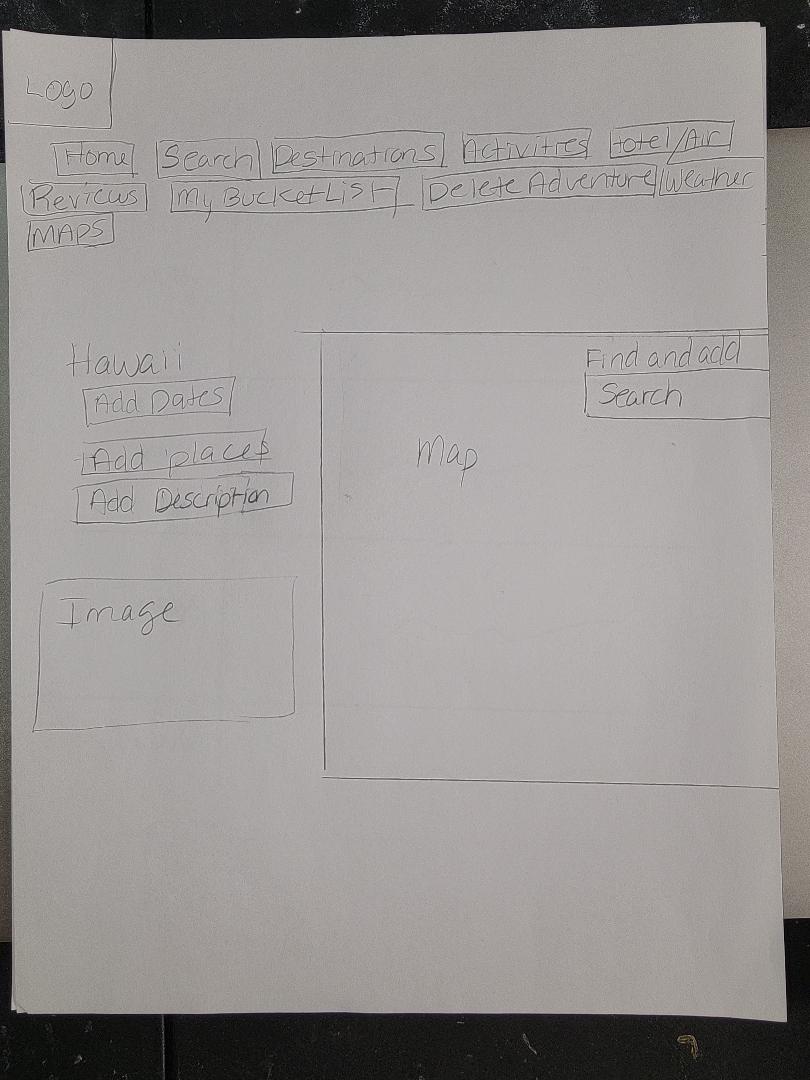 Logo
Home Search Destinations Activities Hotel/Air
Reviews My Bucket List Delete Adventure Weather
MAPS
Hawaii
Add Dates
Add places
Add Description
Image
Find and add
Search
Map